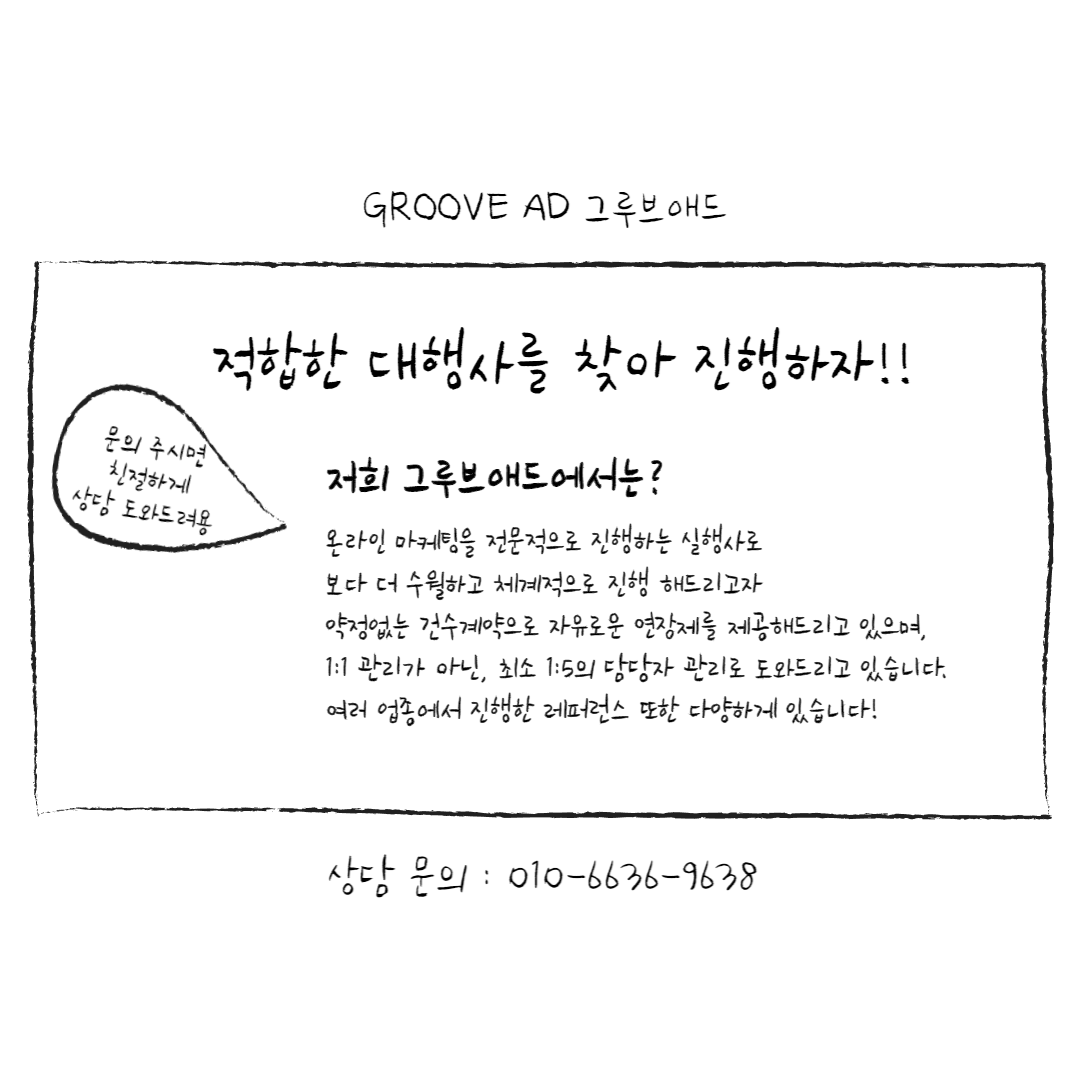 GROOVE AD 그루브애드
적합한 대행사를 찾아 진행하자!!
문의 주시면
친절하게
상담 도와드려용
저희 그루브애드에서는?
온라인 마케팅을 전문적으로 진행하는 실행사로
보다 더 수월하고 체계적으로 진행 해드리고자
약정없는 건수계약으로 자유로운 연장제를 제공해드리고 있으며,
1:1 관리가 아닌, 최소 1:5의 담당자 관리로 도와드리고 있습니다.
여러 업종에서 진행한 레퍼런스 또한 다양하게 있습니다!
상담 문의 : 010-6636-9638